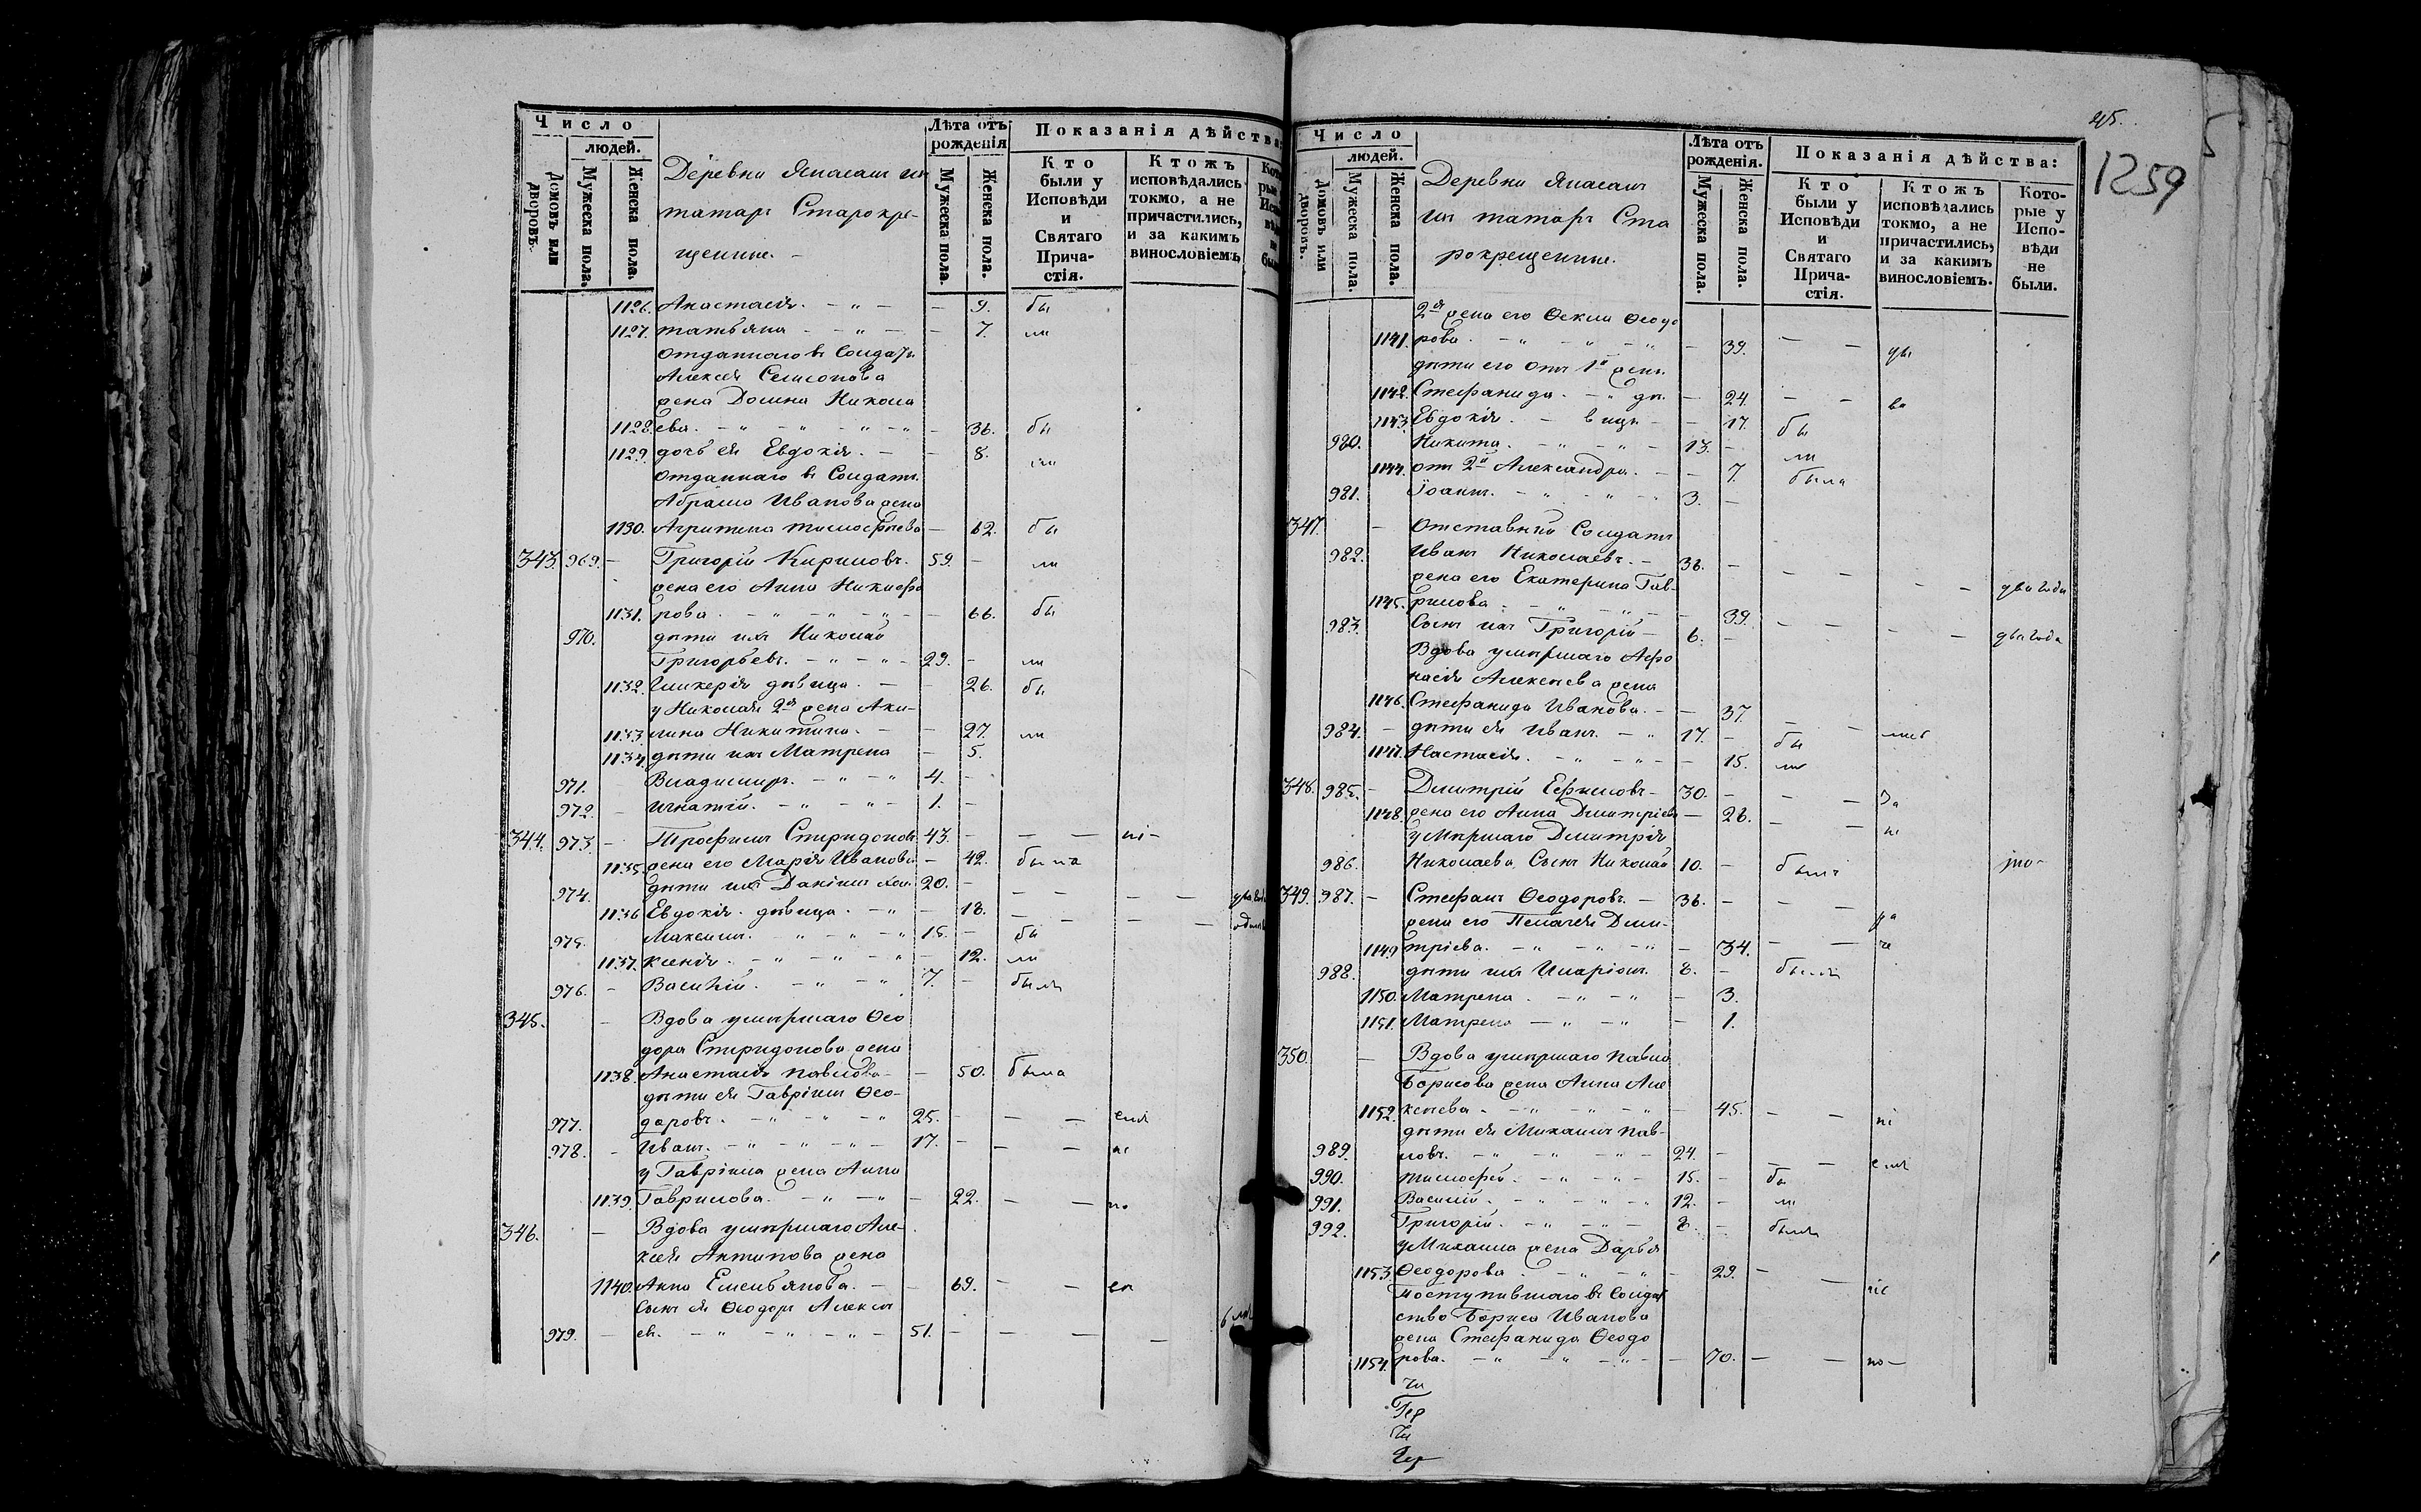 Число
людей.
Домовъ или дворовъ.
Мужеска пола.
Женска пола.
Деревни
татаръ Старокре-
щенные. -
Лѣта отъ
рожденія
Мужеска пола.
Женска пола.
Показанія дѣйства
Кто
были у
Исповѣди
и
Святаго
Прича-
стія.
Ктожъ
исповѣдались
токмо, а не
причастились,
и за какимъ
винословіемъ
1126. Анастасія. - „ - - 9. бы
1127. татьяна - - „ - - 7. ли
Отданнаго въ Солдаты
Алексея
жена Домна Никола
1128. ева. - „ - „ - „ - „ - 36. бы
1129. дочь ея Евдокія. - - 8. ли
Отданнаго въ Солдаты
Абрама Иванова жена
1130. Агрипина тимофеева - 62. бы
343. 969. - Григорій Кириловъ. 59. - ли
жена его Анна Никифо
1131. рова. - „ - „ - „ - 66. бы
970. дѣти ихъ Николай
Григорьевъ. - „ - „ - 29. - ли
1132. Гликерія дѣвица. - - 26. бы
у Николая 2я жена Аки-
1133. лина Никитина. - - 27. ли
1134. дѣти ихъ Матрена - 5.
971. Владимиръ. - „ - „ 4. -
972. - Игнатій. - „ - „ - 1. -
344. 973. - Трофимъ Спиридоновъ 43. - - -
1135. жена его Марія Иванова - 42. была
974. дѣти ихъ Даніилъ 20. - - - - -
1136 Евдокія. дѣвица. - „ - 18. - - - -
975. Максимъ. - „ - „ - „ 15. - бы
1137. ксенія. - „ - „ - „ - 12. ли
976. - Василій. - „ - „ 7. - былъ
345. - Вдова умершаго Ѳео
дора Спиридонова жена
1138. Анастасія павлова - - 50. была
дѣти ея Гавріилъ Ѳео-
977. доровъ. - „ - „ - „ 25. - - -
978. - Иванъ. - „ - „ - „ - 17. - - -
у Гавріила жена Анна
1139. Гаврилова. - „ - „ - 22. - -
346. - Вдова умершаго Але-
ксея Антипова жена
1140. Анна Емельянова. - - 69. - -
Сынъ ея Ѳеодоръ Алексѣ
979. - евъ. - „ - „ - „ - 51. - - - -
45.
1259
Число
людей.
Домовъ или дворовъ.
Мужеска пола.
Женска пола.
Деревни
татаръ Ста
рокрещенные.
Лѣта отъ
рожденія.
Мужеска пола.
Женска пола.
Показанія дѣйства:
Кто
были у
Исповѣди
и
Святаго
Прича-
стія.
Ктожъ
исповѣдались
токмо, а не
причастились,
и за какимъ
винословіемъ.
Кото-
рые у
Испо-
вѣди
не
были.
2я жена его Ѳекла Ѳеодо
1141. рова. - „ - „ - „ - 39. - -
дѣти его отъ 1й жены
1142. Стефанида. - „ дѣ. - 24. - -
1143. Евдокія. - вицы - - 17. бы
980. Никита. - „ - „ - 13. - ли
1144. отъ 2й Александра. - - 7. была
981. Іоаннъ. - „ - „ - „ 3. -
347. - Отставный Солдатъ
982. Иванъ Николаевъ. - 36. -
жена его Екатерина Гав- два года
1145. рилова - - „ - „ - - 39.
983. Сынъ ихъ Григорій - 6. - два года
Вдова умершаго Афо
насія Алексеева жена
1146. Стефанида Иванова. - - 37. - -
984. - дѣти ея Иванъ. - „ 17. - бы
1147. Настасія. - „ - „ - - 15. ли
348. 985. - Дмитрій Ефимовъ - 30. - - - За
1148. жена его Анна Дмитріева - 26. - -
умершаго Дмитрія
986. Николаева Сынъ Николай 10. - былъ
349. 987. - Стефанъ Ѳеодоровъ. - 36. - - -
жена его Пелагея Дми-
1149 тріева. - „ - „ - „ - 34. - -
988. дѣти ихъ Иларіонъ. 8. - былъ
1150. Матрена. - „ - „ - 3.
1151. Матрена - „ - „ - 1.
350. - Вдова умершаго павла
Борисова жена Анна Але
1152. ксеева. - „ - „ - „ - 45. - -
дѣти ея Михаилъ пав-
989. ловъ. - „ - „ - „ - 24. - - -
990. тимофей. - „ - „ - 15. - бы
991. Василій. - „ - „ - „ 12. - ли
992. Григорій. - „ - „ - 8. - былъ
у Михаила жена Дарья
1153. Ѳеодорова. - „ - „ - 29. - -
поступившаго въ Солдат
ство Бориса Иванова
жена Стефанида Ѳеодо
1154. рова. - „ - „ - „ - - 70. - -